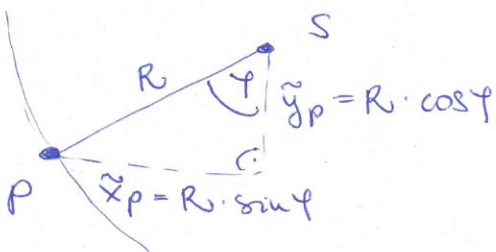 S
R
φ
ỹ_P = R · cosφ
P
x̃_P = R · sinφ